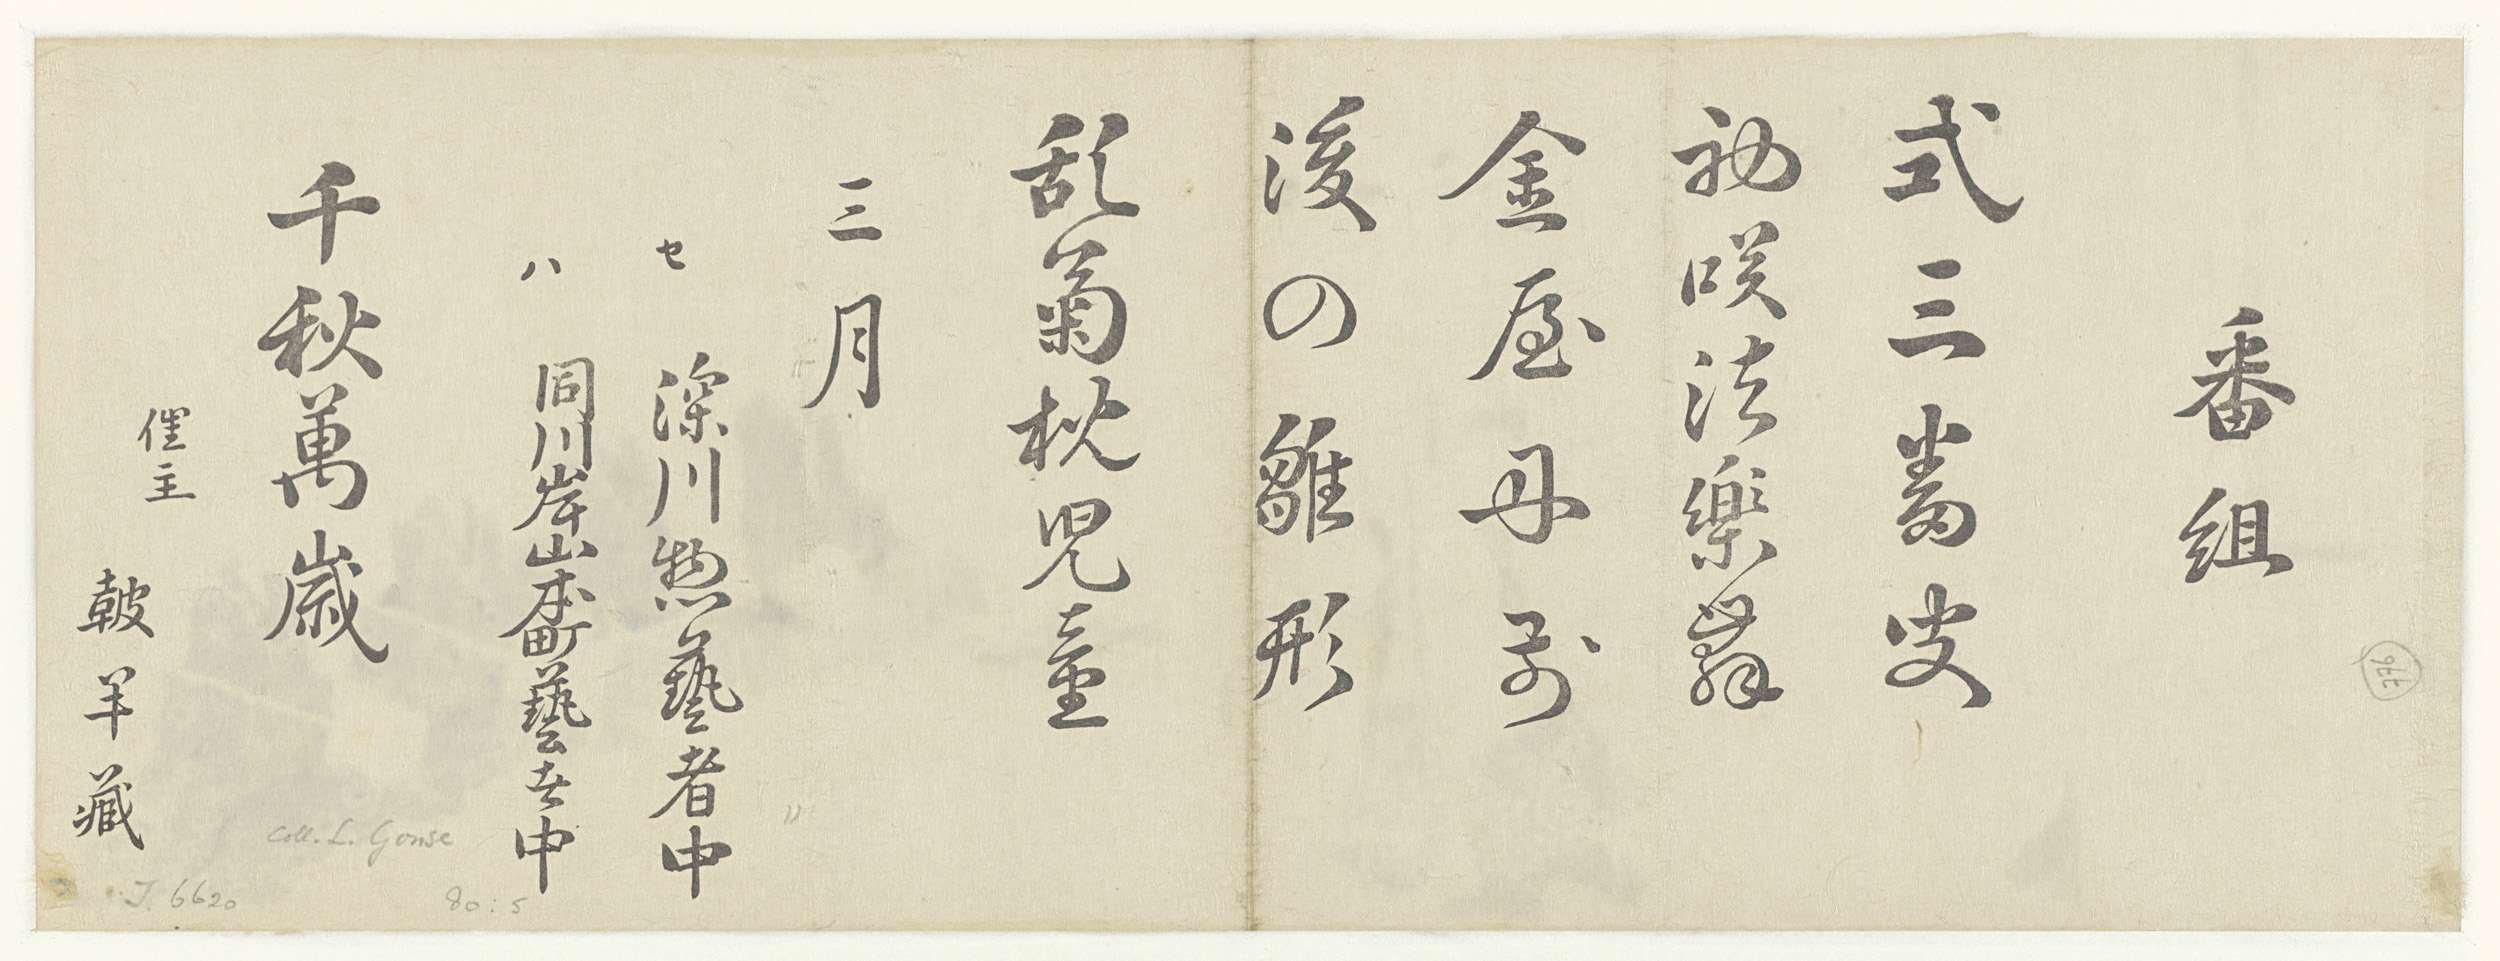 番組
式三番叟
初咲法楽舞
金屋丹前
後の雛形
乱菊枕児童
三月
セ 深川惣藝者中
ハ 同川岸山本町藝者中
千秋萬歳
催主 皷羊蔵
776
Coll. L. Gonse
J. 6620
80:5